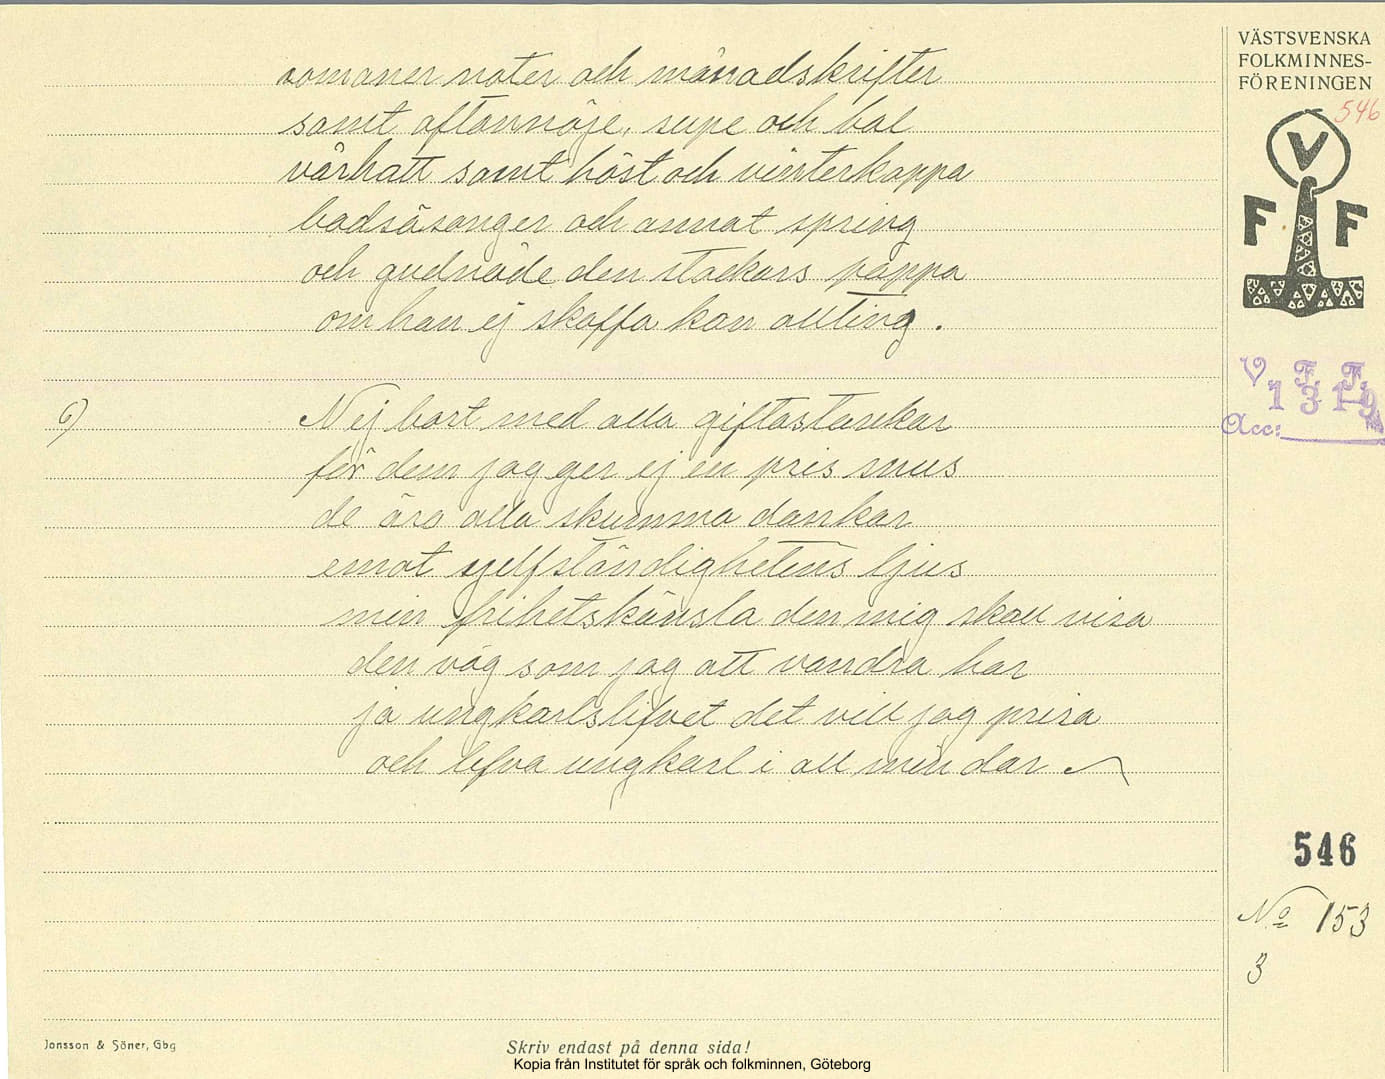 romaner noter och månadskrifter
samt aftonnöje, supe och bal
vårhatt samt höst och vinterkappa
badsäsonger och annat spring
och gudnåde den stackars pappa
om han ej skaffa kan allting.
Nej bort med alla giftastankar
för dem jag ger ej en pris snus
de äro alla skumma dankar
emot sjelfständighetens ljus
min frihetskänsla den mig skall visa
den väg som jag att vandra har
ja ungkarlslifvet det vill jag prisa
och lefva ungkarl i all min dar
VÄSTSVENSKA
FOLKMINNES-
FÖRENINGEN
546
V
F F
V. F. F.
1319
Acc:
546
No 153
3
Jonsson & Söner, Gbg
Skriv endast på denna sida!
Kopia från Institutet för språk och folkminnen, Göteborg